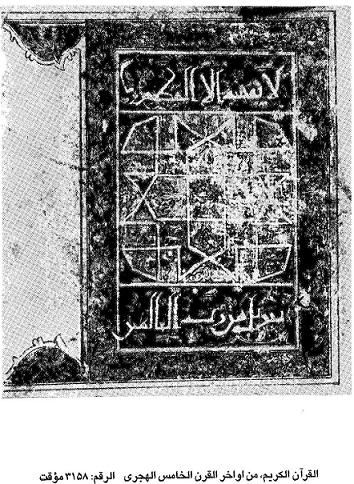 لا يمسه الا المطهرون
تنزيل من رب العالمين
القرآن الكريم، من اواخر القرن الخامس الهجرى الرقم: ٣١٥٨ مؤقت